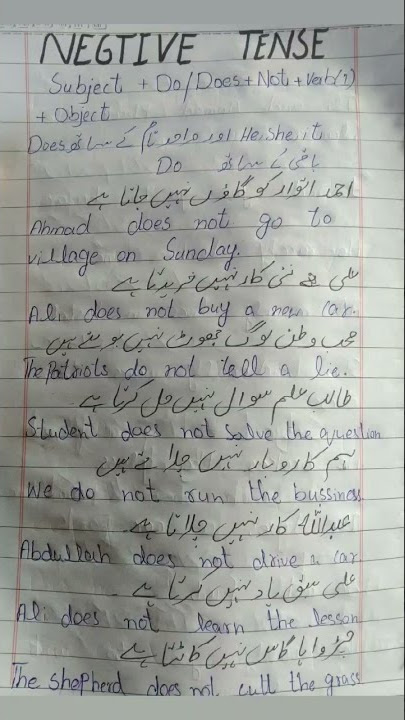 NEGTIVE TENSE
Subject + Do/Does + Not + Verb(1)
+ Object
Does He, She, it اور واحد نام کے ساتھ
Do باقی کے ساتھ
احمد اتوار کو گاؤں نہیں جاتا ہے
Ahmad does not go to
village on Sunday.
علی نئی کار نہیں خریدتا ہے
Ali does not buy a new car.
محب وطن لوگ جھوٹ نہیں بولتے ہیں
The Patriots do not tell a lie.
طالب علم سوال نہیں حل کرتا ہے
Student does not solve the question
ہم کاروبار نہیں چلاتے ہیں
We do not run the bussiness
عبداللہ کار نہیں چلاتا ہے
Abdullah does not drive a car
علی سبق یاد نہیں کرتا ہے
Ali does not learn the lesson
چرواہا گاس نہیں کاٹتا ہے
The shepherd does not cutt the grass